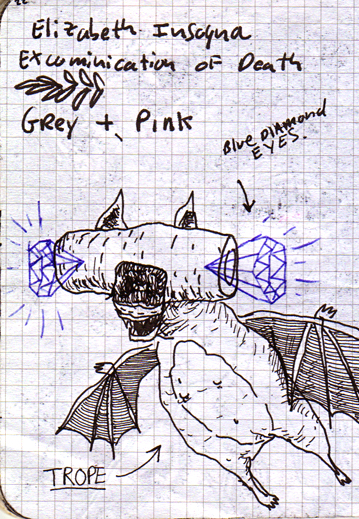 Elizabeth Insogna
Excominication of Death
Grey + Pink
Blue DIAMOND
EYES.
TROPE